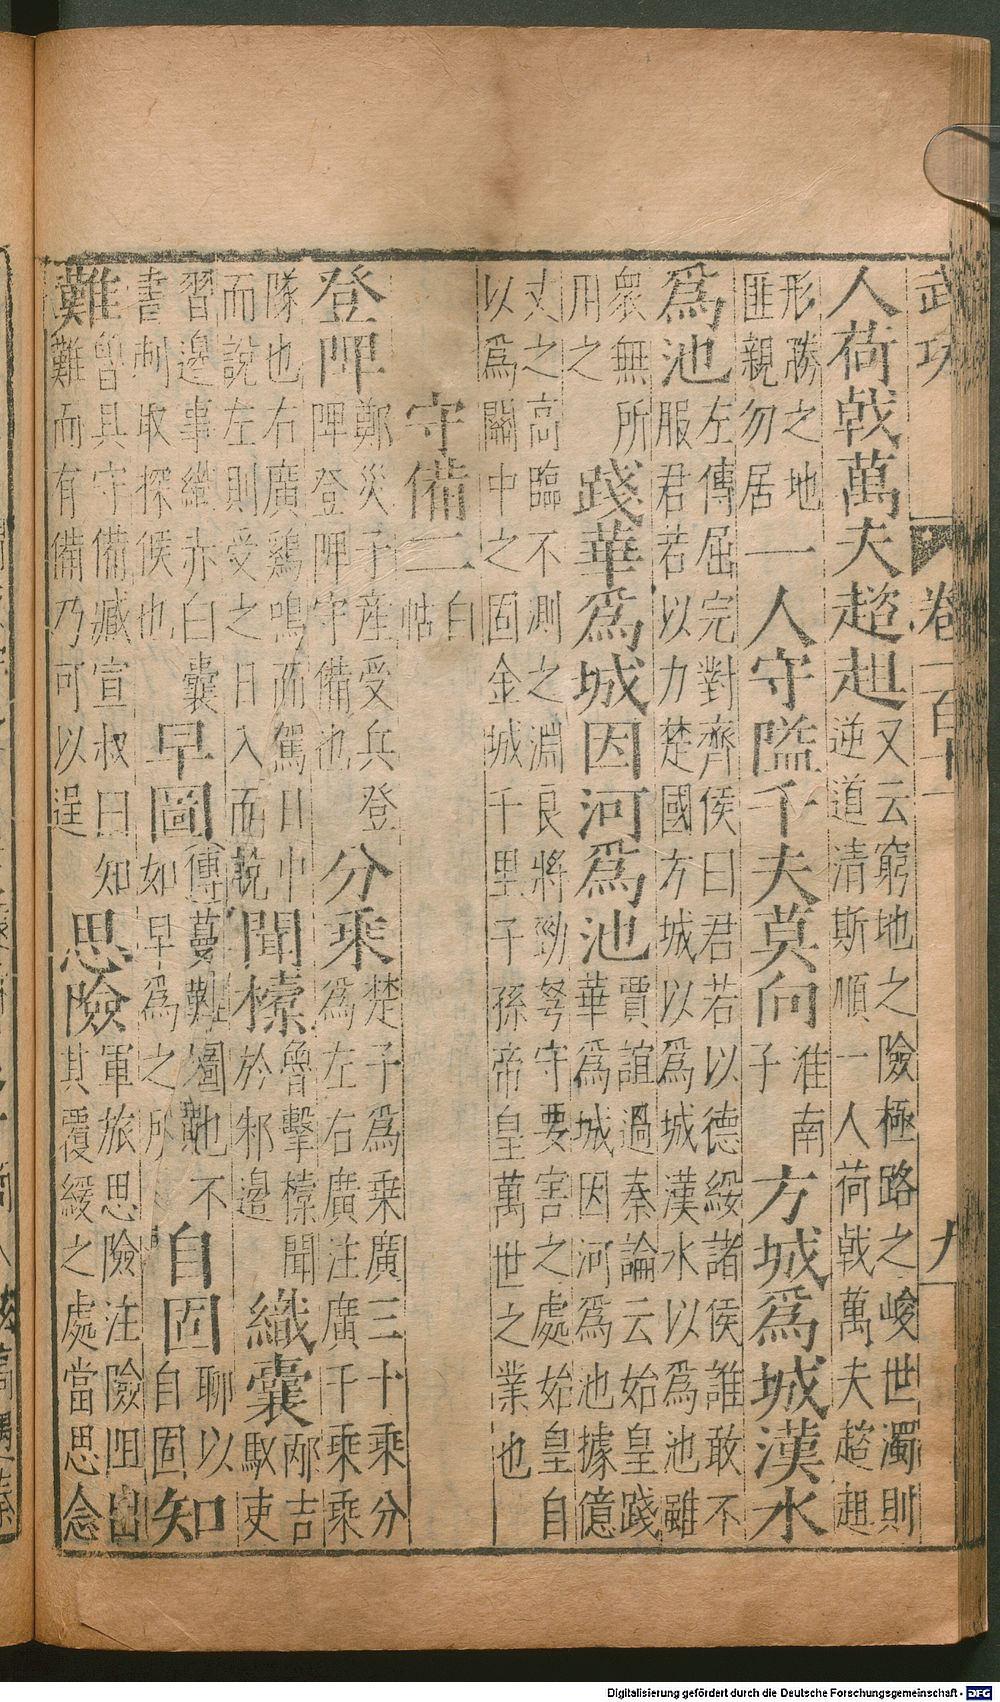 武功 卷一百十一 九
人荷戟萬夫趑趄又云窮地之險極路之峻世濁則
逆道清斯順一人荷戟萬夫趑趄
形勝之地
匪親勿居一人守隘千夫莫向淮南
子方城爲城漢水
爲池左傳屈完對齊侯曰君若以德綏諸侯誰敢不
服君若以力楚國方城以爲城漢水以爲池雖
衆無所
用之踐華爲城因河爲池賈誼過秦論云始皇踐
華爲城因河爲池據億
丈之高臨不測之淵良將勁弩守要害之處始皇自
以爲關中之固金城千里子孫帝皇萬世之業也
守備二白
帖
登陴鄭災子產受兵登
陴登陴守備也分乘楚子爲乘廣三十乘分
爲左右廣注廣千乘乘
隊也右廣鷄鳴而駕日中
而說左則受之日入而說聞㯓魯擊㯓聞
於邾邊織囊邴吉
馭吏
習邊事纔赤白囊
書刺取探候也早圖傳蔓難圖也不
如早爲之所自固聊以
自固知
難魯具守備臧宣叔曰知
難而有備乃可以逞思險軍旅思險注險阻出
其覆緩之處當思念
Digitalisierung gefördert durch die Deutsche Forschungsgemeinschaft - DFG